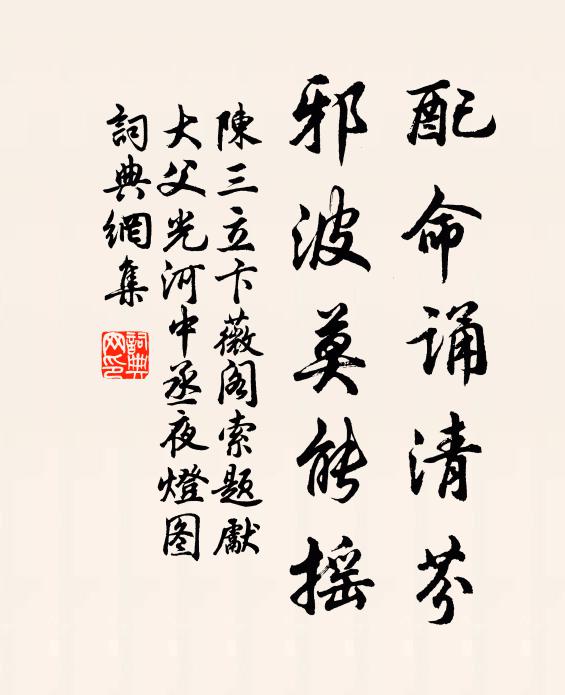 配命诵清芬
邪波莫能摇
陳三立卞薇阁索题獻
大父光河中丞夜燈图
詞典網集
詞典网印